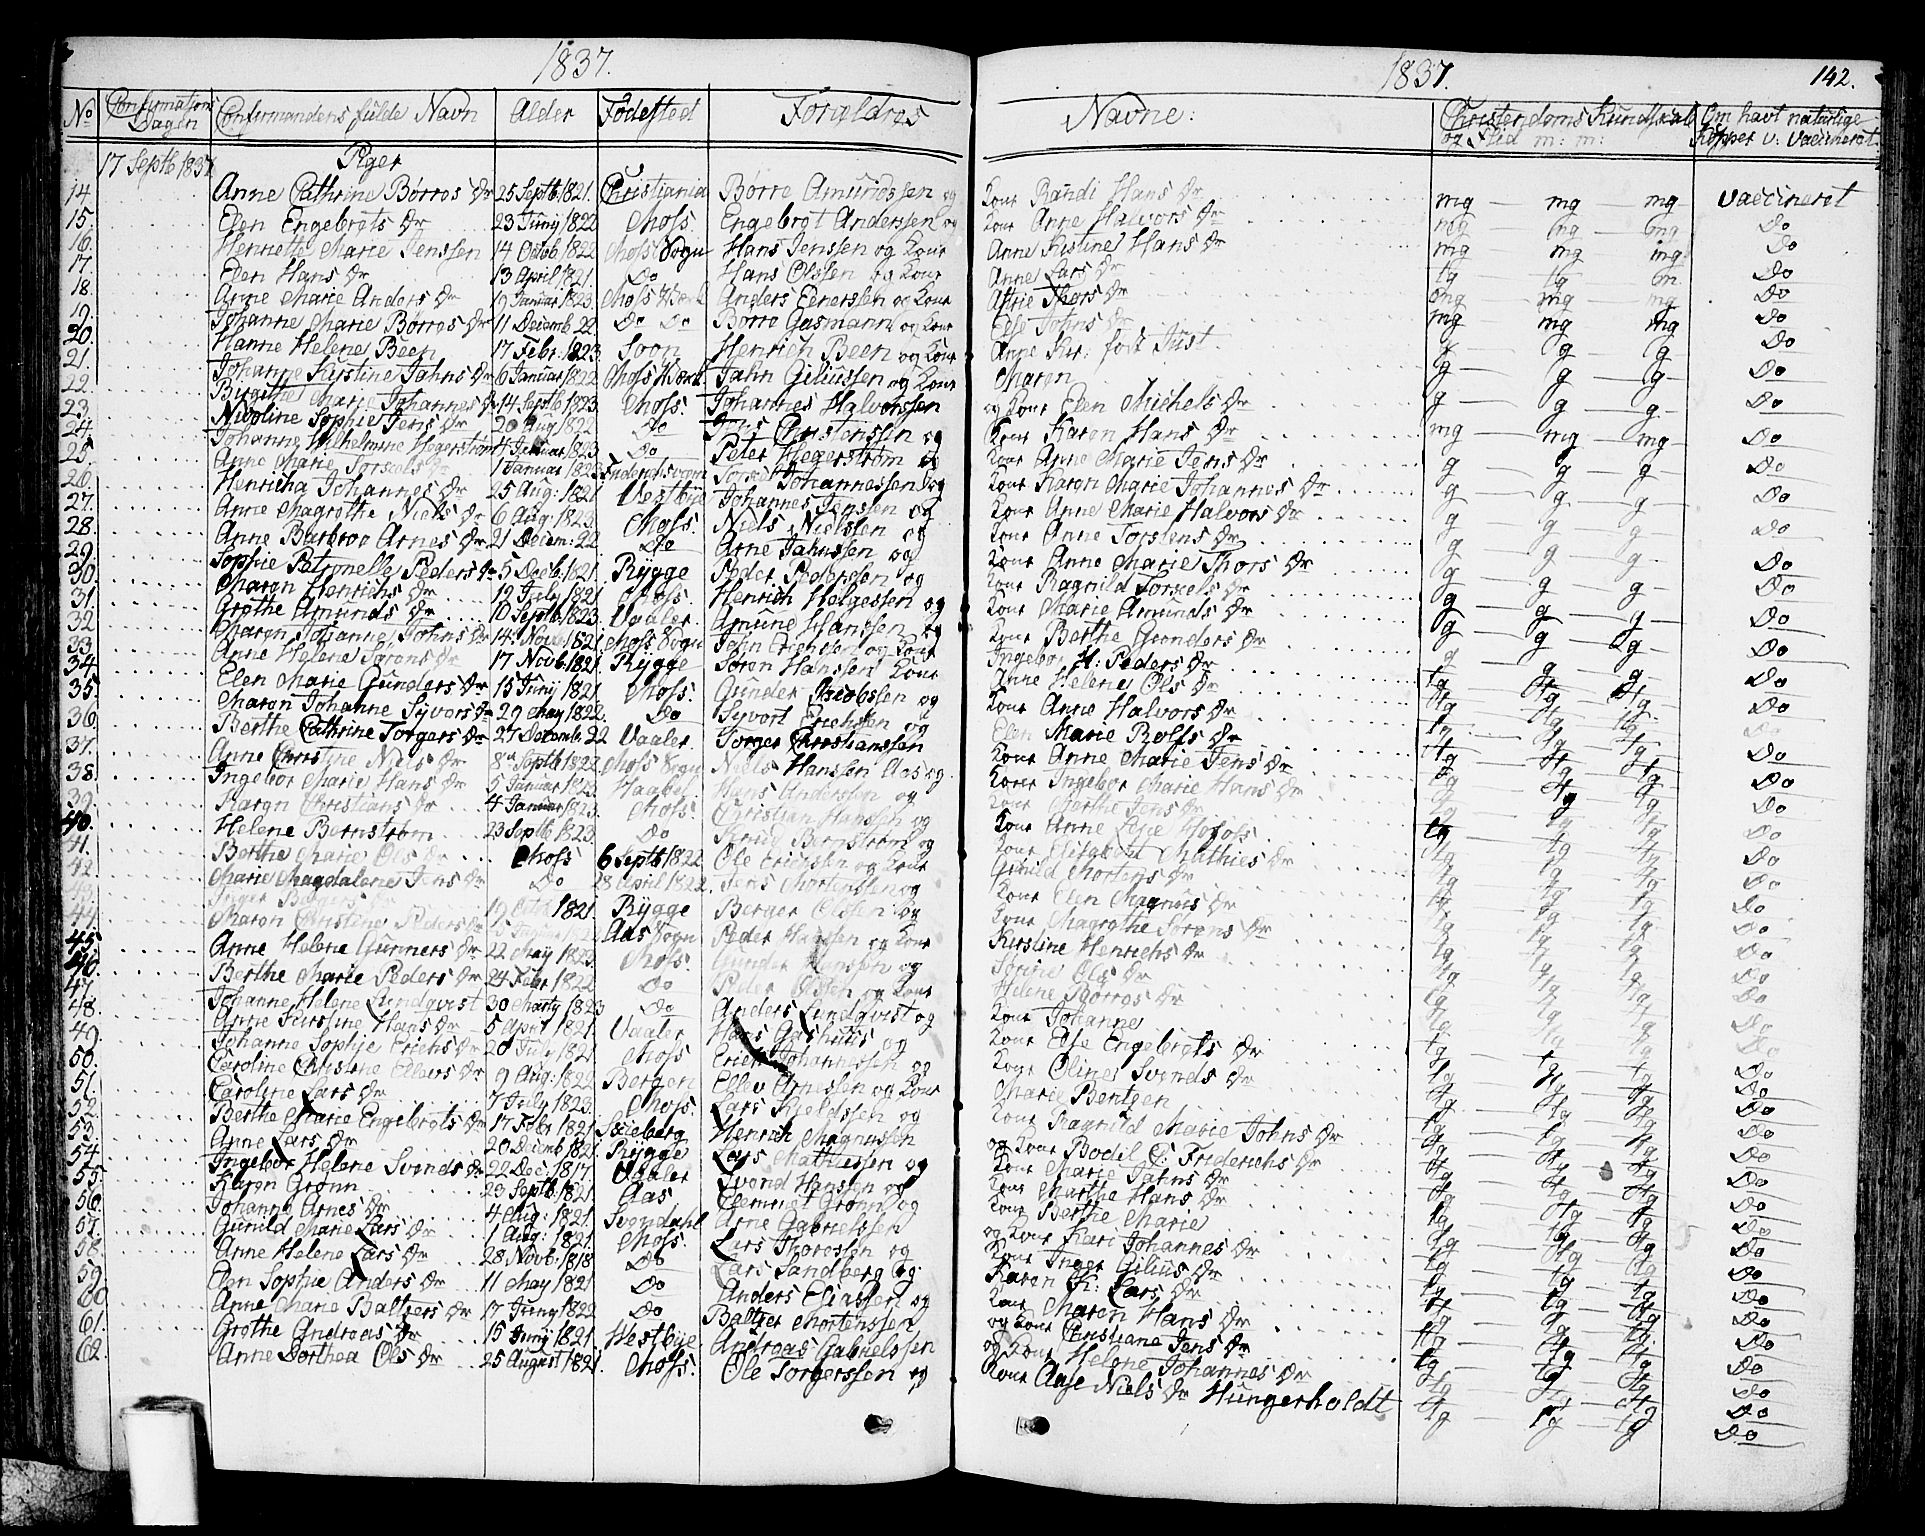 1837.
1837.
142.
No Confirmations Dagen Confirmandens fulde Navn Alder Fødested Forældres Navne: Christendoms Kundskab og Flid m: m: Om havt naturlige Kopper v: Vaccineret
17 Septb 1837 Piger
14 Anne Cathrine Børres Dr 25 Septb. 1821. Christiania Børre Amundssen og Kone Randi Hans Dr mg — mg — mg Vaccineret
15. Elen Engebrets Dr 23 Juny 1822 Moss. Engebret Anderssen og Kone Anne Halvors Dr mg — mg — mg Do
16. Henriette Marie Jenssen 14 Octob 1822 Moss Sogn Hans Jenssen og Kone Anne Kirstine Hans Dr mg mg mg Do
17. Elen Hans Dr 13 April 1821. Do Hans Olssen og Kone Anne Lars Dr tg tg m Do
18. Anne Marie Anders Dr 19 Januar 1823. Moss Værk Anders Enerssen og Kone Marie Thors Dr mg — mg — mg Do
19. Johanne Marie Børres Dr 11 Decemb. 22 Do Do Børre Gusmann og Kone Else Johns Dr mg mg mg Do
20. Hanne Helene Been 17 Febr. 1823. Soon Henrich Been og Kone Anne Kir: født Just. g g g Do
21. Johanne Kirstine Jahns Dr 6 Januar 1822 Moss Værk. Jahn Giliussen og Kone Maren g — g — g Do
22. Birgithe Marie Johannes Dr 14 Septb 1823. Moss. Johannes Halvorssen og Kone Elen Michels Dr g g g Do
23. Nicoline Sophie Jens Dr 20 Aug 1822 Do Jens Christenssen og Kone Karen Hans Dr mg mg mg Do
24. Johanne Wilhelmine Hegerstrøm 4 Januar 1823 Do Peter Hegerstrøm og Kone Anne Marie Jens Dr g g g Do
25. Anne Marie Torkels Dr 1 Januar 1823 Johannessen og Kone Karen Marie Johannes Dr g g g Do
26. Henricha Johannes Dr 25 Aug: 1821 Vestbye Johannes Jenssen og Kone Anne Marie Halvors Dr g g g Do
27. Anne Magrethe Niels Dr 6 Aug: 1823. Moss. Niels Nielssen og Kone Anne Torstens Dr g g g Do
28. Anne Barbroe Arnes Dr 21 Decem: 22 Do Arne Jahnssen og Kone Anne Marie Thors Dr g g g Do
29. Sophie Petronelle Peders Dr 5 Decb. 1821. Rygge Peder Pederssen og Kone Ragnild Torkels Dr g g g Do
30. Maren Henrichs Dr 12 July 1821 Moss. Henrich Helgessen og Kone Marie Amunds Dr g g g Do
31. Grethe Amunds Dr 10 Septb. 1823. Vaaler Amund Hanssen og Kone Berthe Gunders Dr g g g Do
32. Maren Johanne Johns Dr 14 Nov: 1821 Moss Sogn John Erichssen og Kone Ingebor H: Peders Dr g g g Do
33. Anne Helene Sørens Dr 17 Novb. 1821. Rygge Søren Hanssen Kone Anne Helene Ols Dr tg tg tg Do
34. Elen Marie Gunders Dr 15 Juny 1821. Moss. Gunder Jacobssen og Kone Anne Halvors Dr tg tg tg Do
35. Maren Johanne Syvers Dr 29 May 1822. Do Syvert Erichssen og Elen Marie Rolfs Dr tg tg tg Do
36. Berthe Cathrine Torgers Dr 27 Decemb 22 Vaaler. Torger Christianssen Kone Anne Marie Jens Dr tg tg tg Do
37. Anne Christine Niels Dr 8 Septb 1822 Moss Sogn Niels Hanssen Aas og Kone Ingebor Marie Hans Dr tg tg tg Do
38. Ingebor Marie Hans Dr 5 Januar 1823. Haabel Hans Anderssen og Kone Marthe Jens Dr tg tg tg Do
39. Karen Christians Dr 4 Januar 1823. Moss. Christian Hanssen og Kone Anne tg tg tg Do
40. Helene Bernstrøm 23 Septb 1823. Do Bernstrøm og Kone Elisabeth Mathies Dr tg tg tg Do
41. Berthe Marie Ols Dr Moss 6 Septb 1822 Ole Erichsen og Kone Gunild Mortens Dr tg tg tg Do
42. Marie Magdalene Jens Dr Do 28 April 1822. Jens Mortenssen og Kone Elen Magnus Dr tg tg tg Do
43. Inger Bergers Dr 19 1821. Rygge Berger Olssen og Kone Magrethe Sørens Dr tg tg tg Do
44. Maren Christine Peders Dr Aas Sogn Peder Hanssen og Kone Kirstine Henrichs Dr tg tg tg Do
45. Anne Helene Gunners Dr 22 May 1823. Moss. Gunder Hanssen og Ols Dr tg tg tg Do
46. Berthe Marie Peders Dr 24 Febr 1822 Do Peder Olssen og Kone Helene Børres Dr tg tg tg Do
47. Johanne Helene Lundqvist 30 Marty 1823 Do Anders Lundqvist og Kone Johanne tg tg tg Do
48. Anne Kirstine Hans Dr 5 April 1821. Vaaler Hans og Kone Else Engebrets Dr tg tg tg Do
49. Johanne Sophie Erichs Dr 20 July 1821 Moss Erich Johannessen og Kone Oline Svends Dr tg tg tg Do
50. Caroline Christine Ellevs Dr 9 Aug: 1822 Bergen Ellev Arnessen og Kone Marie Bentzen tg tg tg Do
51. Caroline Lars Dr 7 July 1823. Moss. Lars Kjeldssen og Kone Ragnild Marie Johns Dr tg tg tg Do
52. Berthe Marie Engebrets Dr 17 Febr 1821. Skieberg Henrich Magnussen og Kone Bodel C: Friderichs Dr tg tg tg Do
53. Anne Lars Dr 20 Decemb 1821. Rygge Lars Mathiessen og Kone Marie Jahns Dr tg tg tg Do
54. Ingebor Helene Svends Dr 22 Dec: 1817. Vaaler Svend Hansen og Kone Marthe Hans Dr tg tg tg Do
55. Karen Grønn 23 Septb. 1821. Aas Clemmet Grønn og Kone Berthe Marie tg tg tg Do
56. Johanne Arnes Dr 4 Aug: 1821. Svendahl Arne Gabrielssen og Kone Kari Johannes Dr tg tg tg Do
57. Gunild Marie Lars Dr 1 Aug: 1821. Moss. Lars Thoressen og Kone Inger Gilius Dr tg tg tg Do
58. Anne Helene Lars Dr 28 Novb. 1818 Do Lars Sandberg og Karen K: Lars Dr tg tg tg Do
59. Elen Sophie Anders Dr 11 May 1821 Do Anders Eliassen og Kone Maren Hans Dr tg tg tg Do
60. Anne Marie Baltzers Dr 17 Juny 1822 Do Baltzer Mortenssen og Kone Christiane Jens Dr tg tg tg Do
61. Grethe Andreas Dr 15 Juny 1821. Vestbye Andreas Gabrielssen og Kone Helene Johannes Dr tg tg tg Do
62. Anne Dorthea Ols Dr 25 August 1821. Moss. Ole Torgerssen og Kone Aase Niels Dr Hungerholdt tg tg tg Do